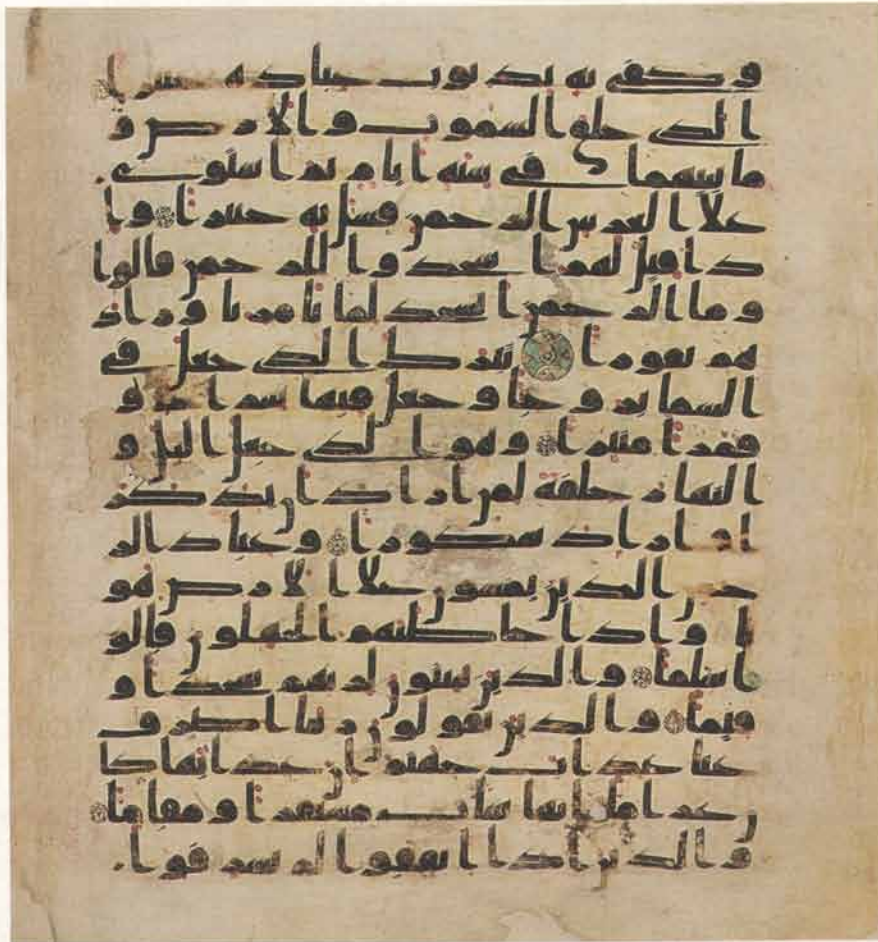 وكفى به بذنوب عباده خبيرا
الذي خلق السموت والارض و
ما بينهما في ستة ايام ثم استوى
علا العرش الرحمن فسل به خبيرا وا
ذا قيل لهم اسجدوا للرحمن قالوا
وما الرحمن انسجد لما تامرنا وزاد
هم نفورا تبرك الذي جعل في
السما بروجا وجعل فيها سراجا و
قمرا منيرا وهو الذي جعل اليل و
النهار خلفة لمن اراد ان يذكر
او اراد شكورا وعباد الر
حمن الذين يمشون علا الارض هو
نا واذا خاطبهم الجهلون قالو
ا سلما والذين يبيتون لربهم سجدا و
قيما والذين يقولون ربنا اصرف
عنا عذاب جهنم ان عذابها كا
ن غراما انها سات مستقرا ومقاما
والذين اذا انفقوا لم يسرفوا